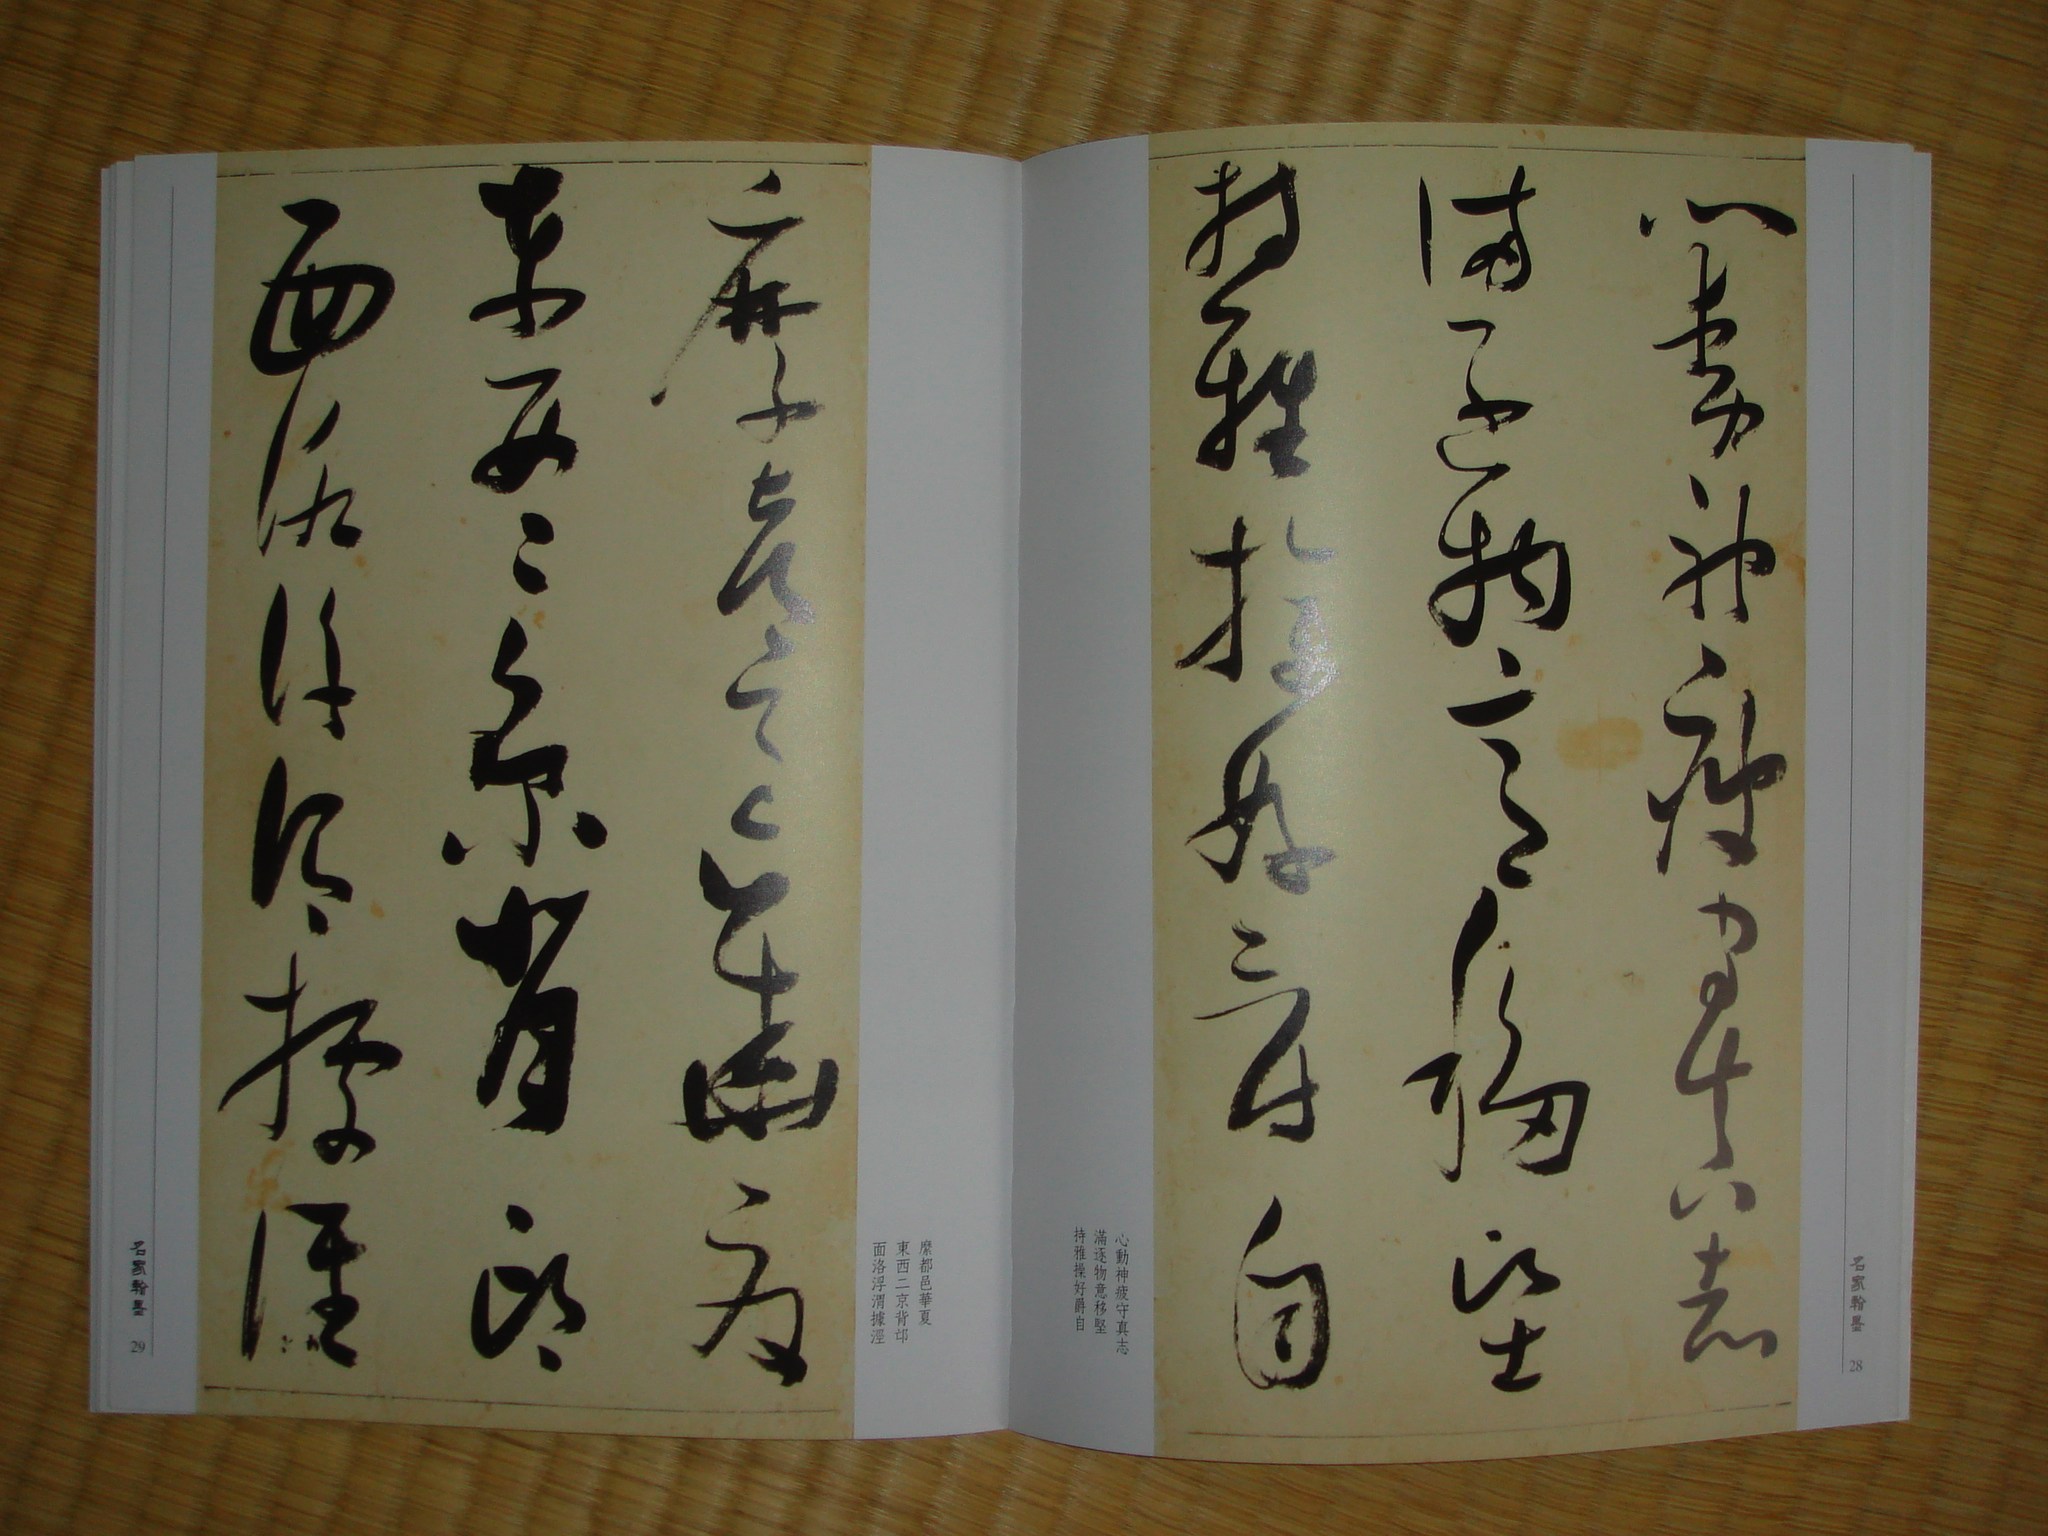 心動神疲守真志
滿逐物意移堅
持雅操好爵自
心動神疲守真志
滿逐物意移堅
持雅操好爵自
名家翰墨 28
縻都邑華夏
東西二京背邙
面洛浮渭據涇
縻都邑華夏
東西二京背邙
面洛浮渭據涇
名家翰墨 29